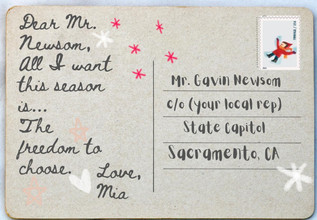 Dear Mr.
Newsom,
All I want
this season
is...
The
freedom to
choose.
Love,
Mia
Mr. Gavin Newsom
c/o (your local rep)
State Capitol
Sacramento, CA